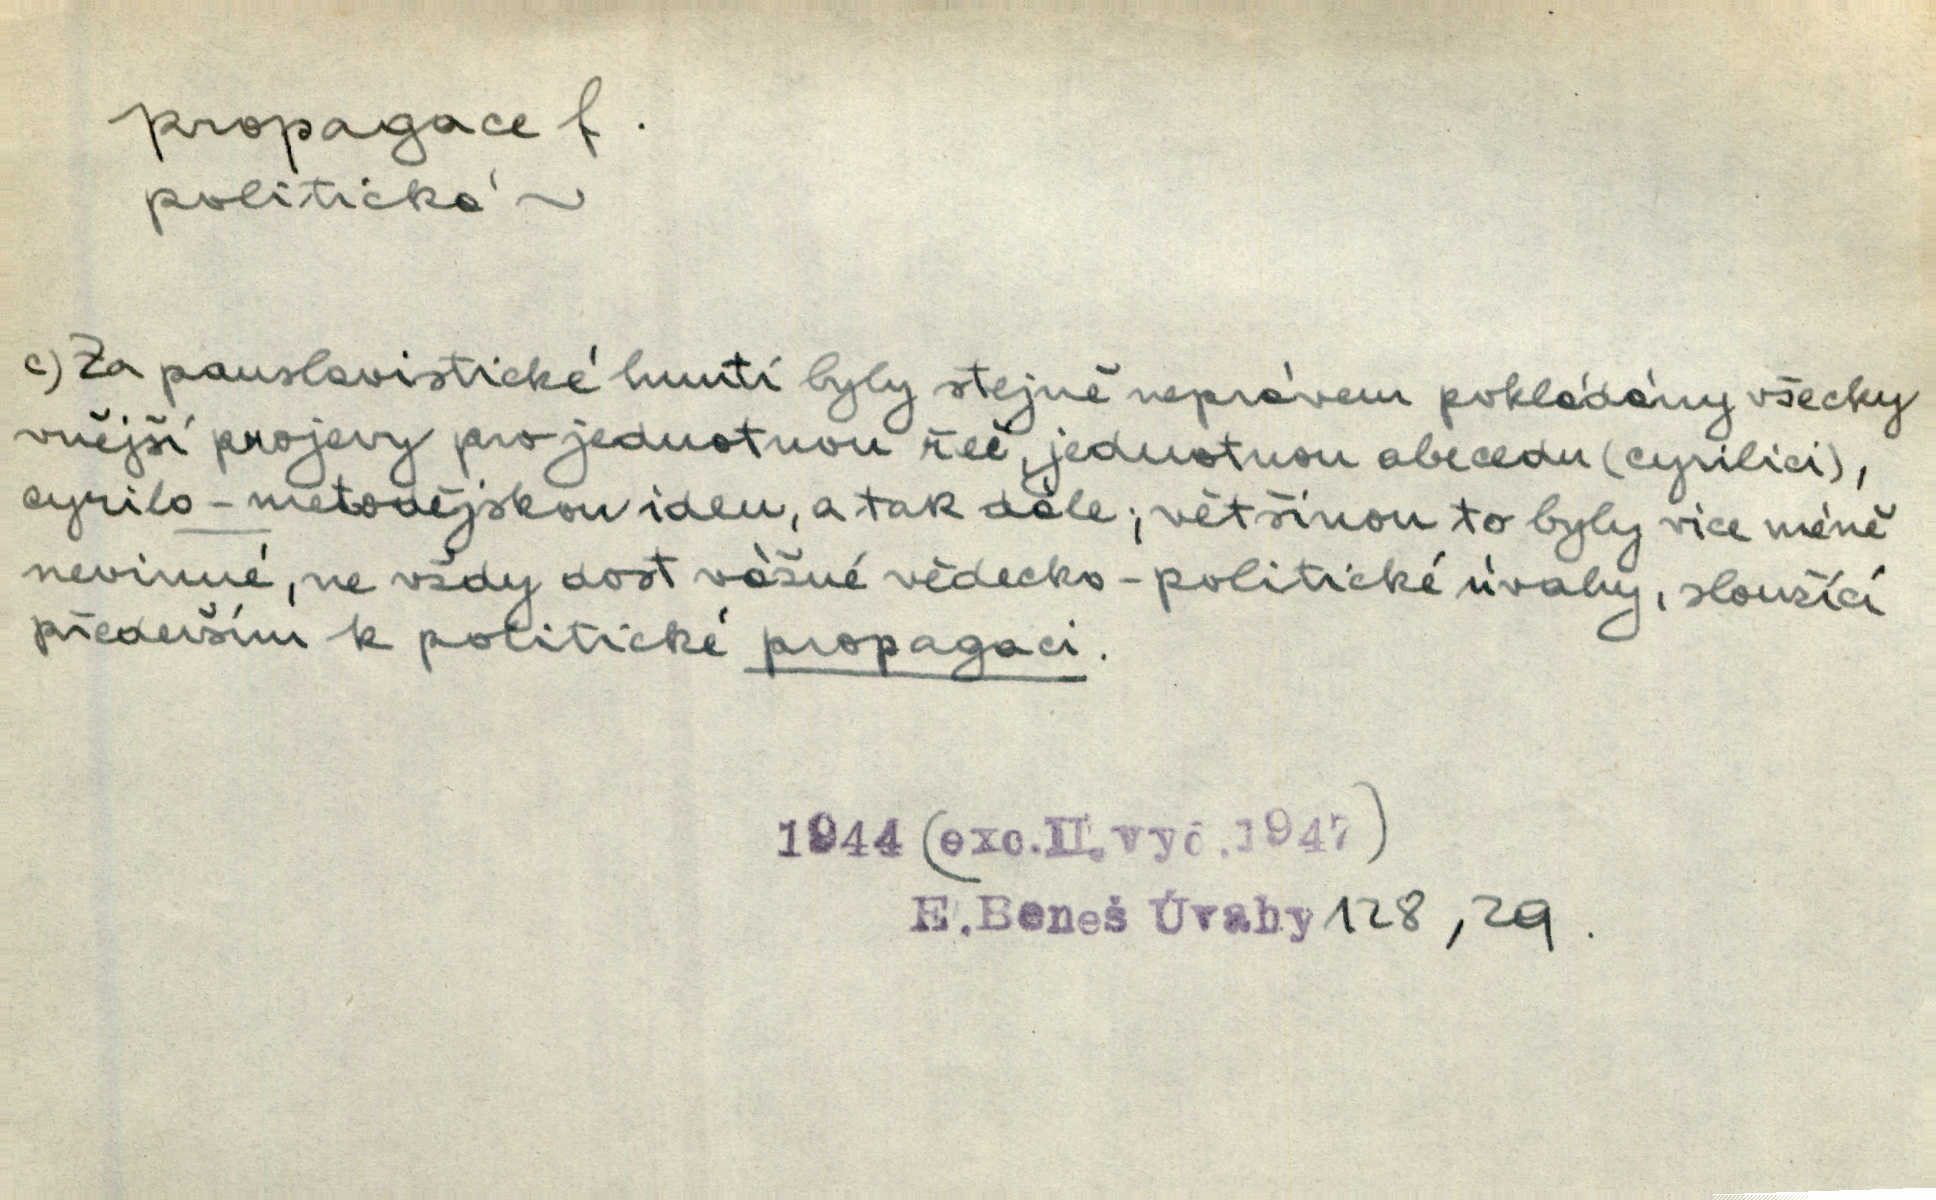 propagace f.
politická ~
c) Za panslavistické hnutí byly stejně neprávem pokládány všecky
vnější projevy pro jednotnou řeč, jednotnou abecedu (cyrilici),
cyrilo-metodějskou ideu, a tak dále; většinou to byly více méně
nevinné, ne vždy dost vážné vědecko-politické úvahy, sloužící
především k politické propagaci.
1944 (exc. II. vyd. 1947)
E. Beneš Úvahy 128, 29.